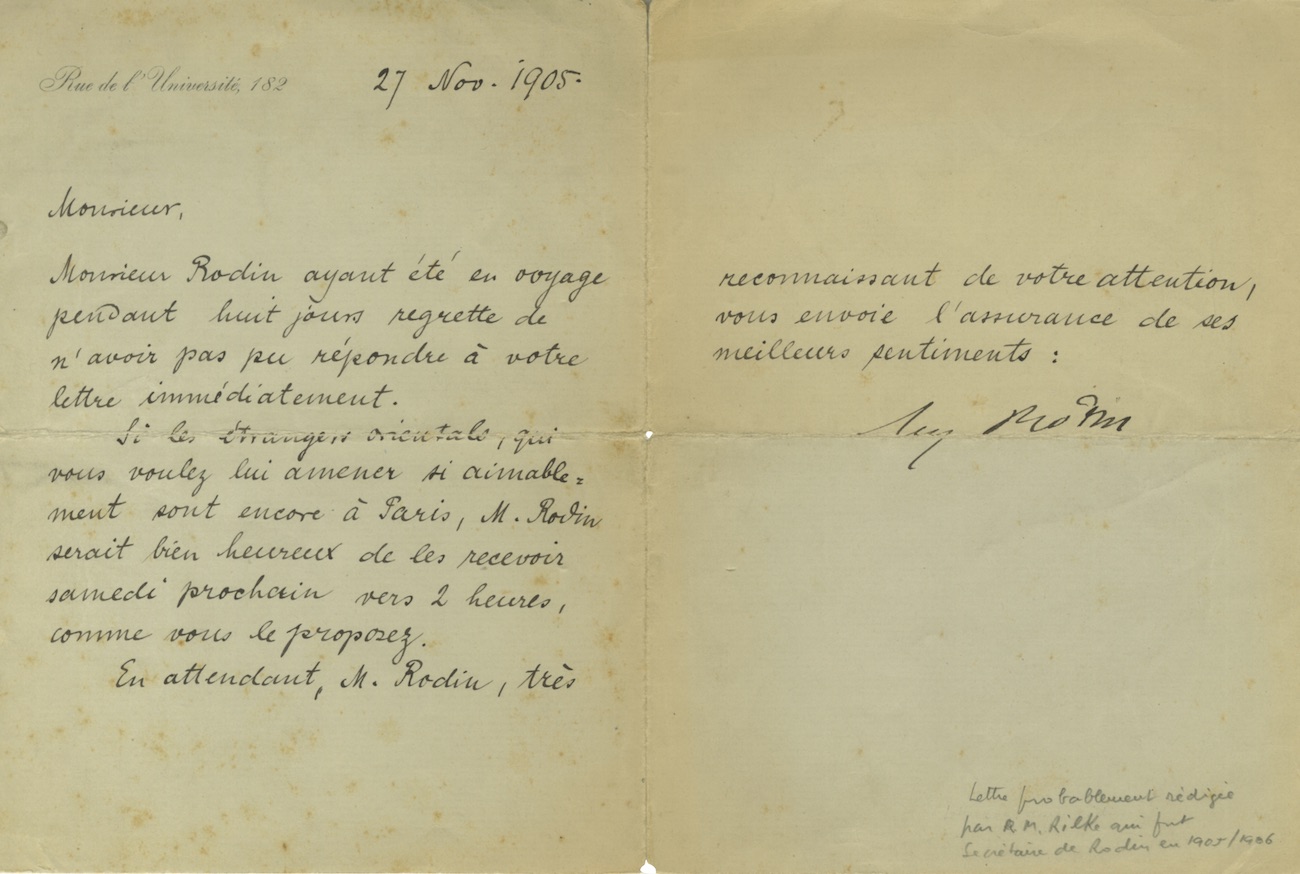 Rue de l'Université, 182
27 Nov. 1905.
Monsieur,
Monsieur Rodin ayant été en voyage
pendant huit jours regrette de
n'avoir pas pu répondre à votre
lettre immédiatement.
Si les étrangers orientals, qui
vous voulez lui amener si aimable=
ment sont encore à Paris, M. Rodin
serait bien heureux de les recevoir
samedi prochain vers 2 heures,
comme vous le proposez.
En attendant, M. Rodin, très
reconnaissant de votre attention,
vous envoie l'assurance de ses
meilleurs sentiments :
Aug Rodin
Lettre probablement rédigée
par R. M. Rilke qui fut
Secrétaire de Rodin en 1905/1906